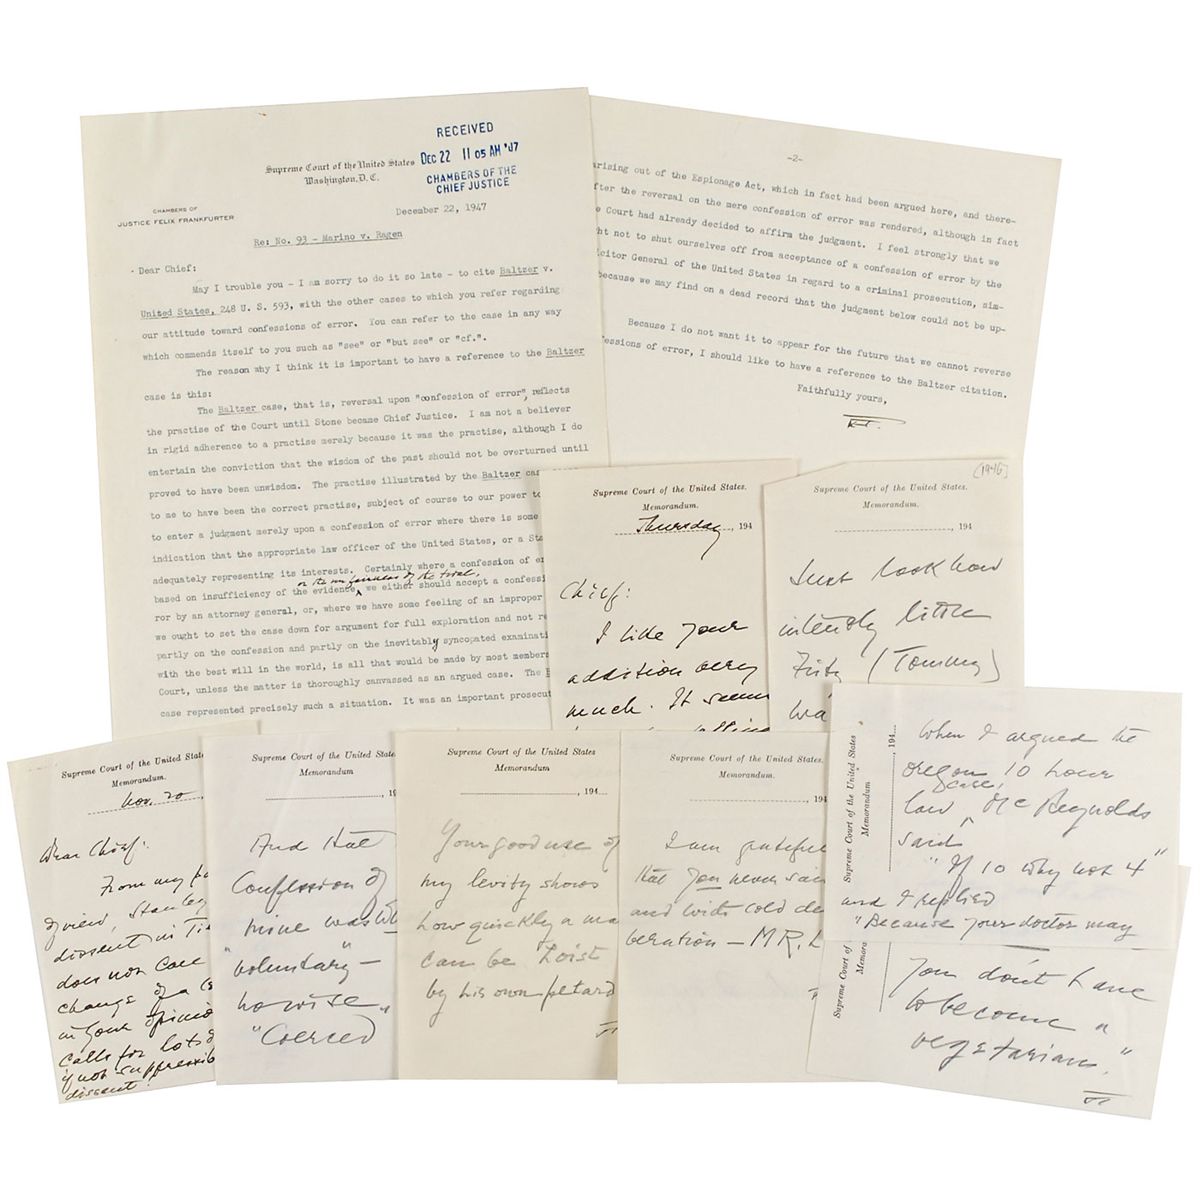 RECEIVED
DEC 22 11 05 AM '47
CHAMBERS OF THE
CHIEF JUSTICE
Supreme Court of the United States
Washington, D. C.
CHAMBERS OF
JUSTICE FELIX FRANKFURTER
December 22, 1947
Re: No. 93 - Marino v. Ragen
Dear Chief:
May I trouble you - I am sorry to do it so late - to cite Baltzer v.
United States, 248 U. S. 593, with the other cases to which you refer regarding
our attitude toward confessions of error. You can refer to the case in any way
which commends itself to you such as "see" or "but see" or "cf.".
The reason why I think it is important to have a reference to the Baltzer
case is this:
The Baltzer case, that is, reversal upon "confession of error", reflects
the practise of the Court until Stone became Chief Justice. I am not a believer
in rigid adherence to a practise merely because it was the practise, although I do
entertain the conviction that the wisdom of the past should not be overturned until
proved to have been unwisdom. The practise illustrated by the Baltzer
to me to have been the correct practise, subject of course to our power
to enter a judgment merely upon a confession of error where there is some
indication that the appropriate law officer of the United States, or a
adequately representing its interests. Certainly where a confession of
or the unfairness of the trial,
based on insufficiency of the evidence, we either should accept a
ror by an attorney general, or, where we have some feeling of an improper
we ought to set the case down for argument for full exploration and not
partly on the confession and partly on the inevitably syncopated
with the best will in the world, is all that would be made by most
Court, unless the matter is thoroughly canvassed as an argued case. The
case represented precisely such a situation. It was an important
-2-
arising out of the Espionage Act, which in fact had been argued here, and there-
after the reversal on the mere confession of error was rendered, although in fact
Court had already decided to affirm the judgment. I feel strongly that we
not to shut ourselves off from acceptance of a confession of error by the
General of the United States in regard to a criminal prosecution, sim-
because we may find on a dead record that the judgment below could not be up-
Because I do not want it to appear for the future that we cannot reverse
of error, I should like to have a reference to the Baltzer citation.
Faithfully yours,
FF.
Supreme Court of the United States.
Memorandum.
Thursday, 194
Chief:
I like your
addition very
much. It
(1946)
Supreme Court of the United States.
Memorandum.
, 194
Just look how
intently little
(Tommy)
Supreme Court of the United States
Memorandum.
Nov. 20,
Dear Chief:
From my
of view, Stanley
dissent in
does not call
change of a
in your
calls for lots of
if not suppressible
dissent!
Supreme Court of the United
Memorandum
And that
Confession of
mine was
"voluntary" —
nowise
"Coerced"
Supreme Court of the United States
Memorandum
, 194
Your good use of
my levity shows
how quickly a
can be hoist
by his own petard
FF
Supreme Court of the United States.
Memorandum.
, 194
I am grateful
that you never
and with cold
beration —
Supreme Court of the United States
Memorandum
, 194
When I argued the
Oregon 10 hour
law case, McReynolds
said
"If 10 why not 4"
and I replied
"Because your doctor may
Supreme Court of
you don't have
to become "
vegetarians."
FF